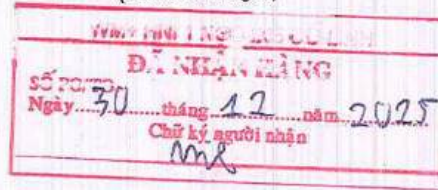 ĐÃ NHẬN HÀNG
SỐ PO/TO
Ngày 30 tháng 12 năm 2025
Chữ ký người nhận